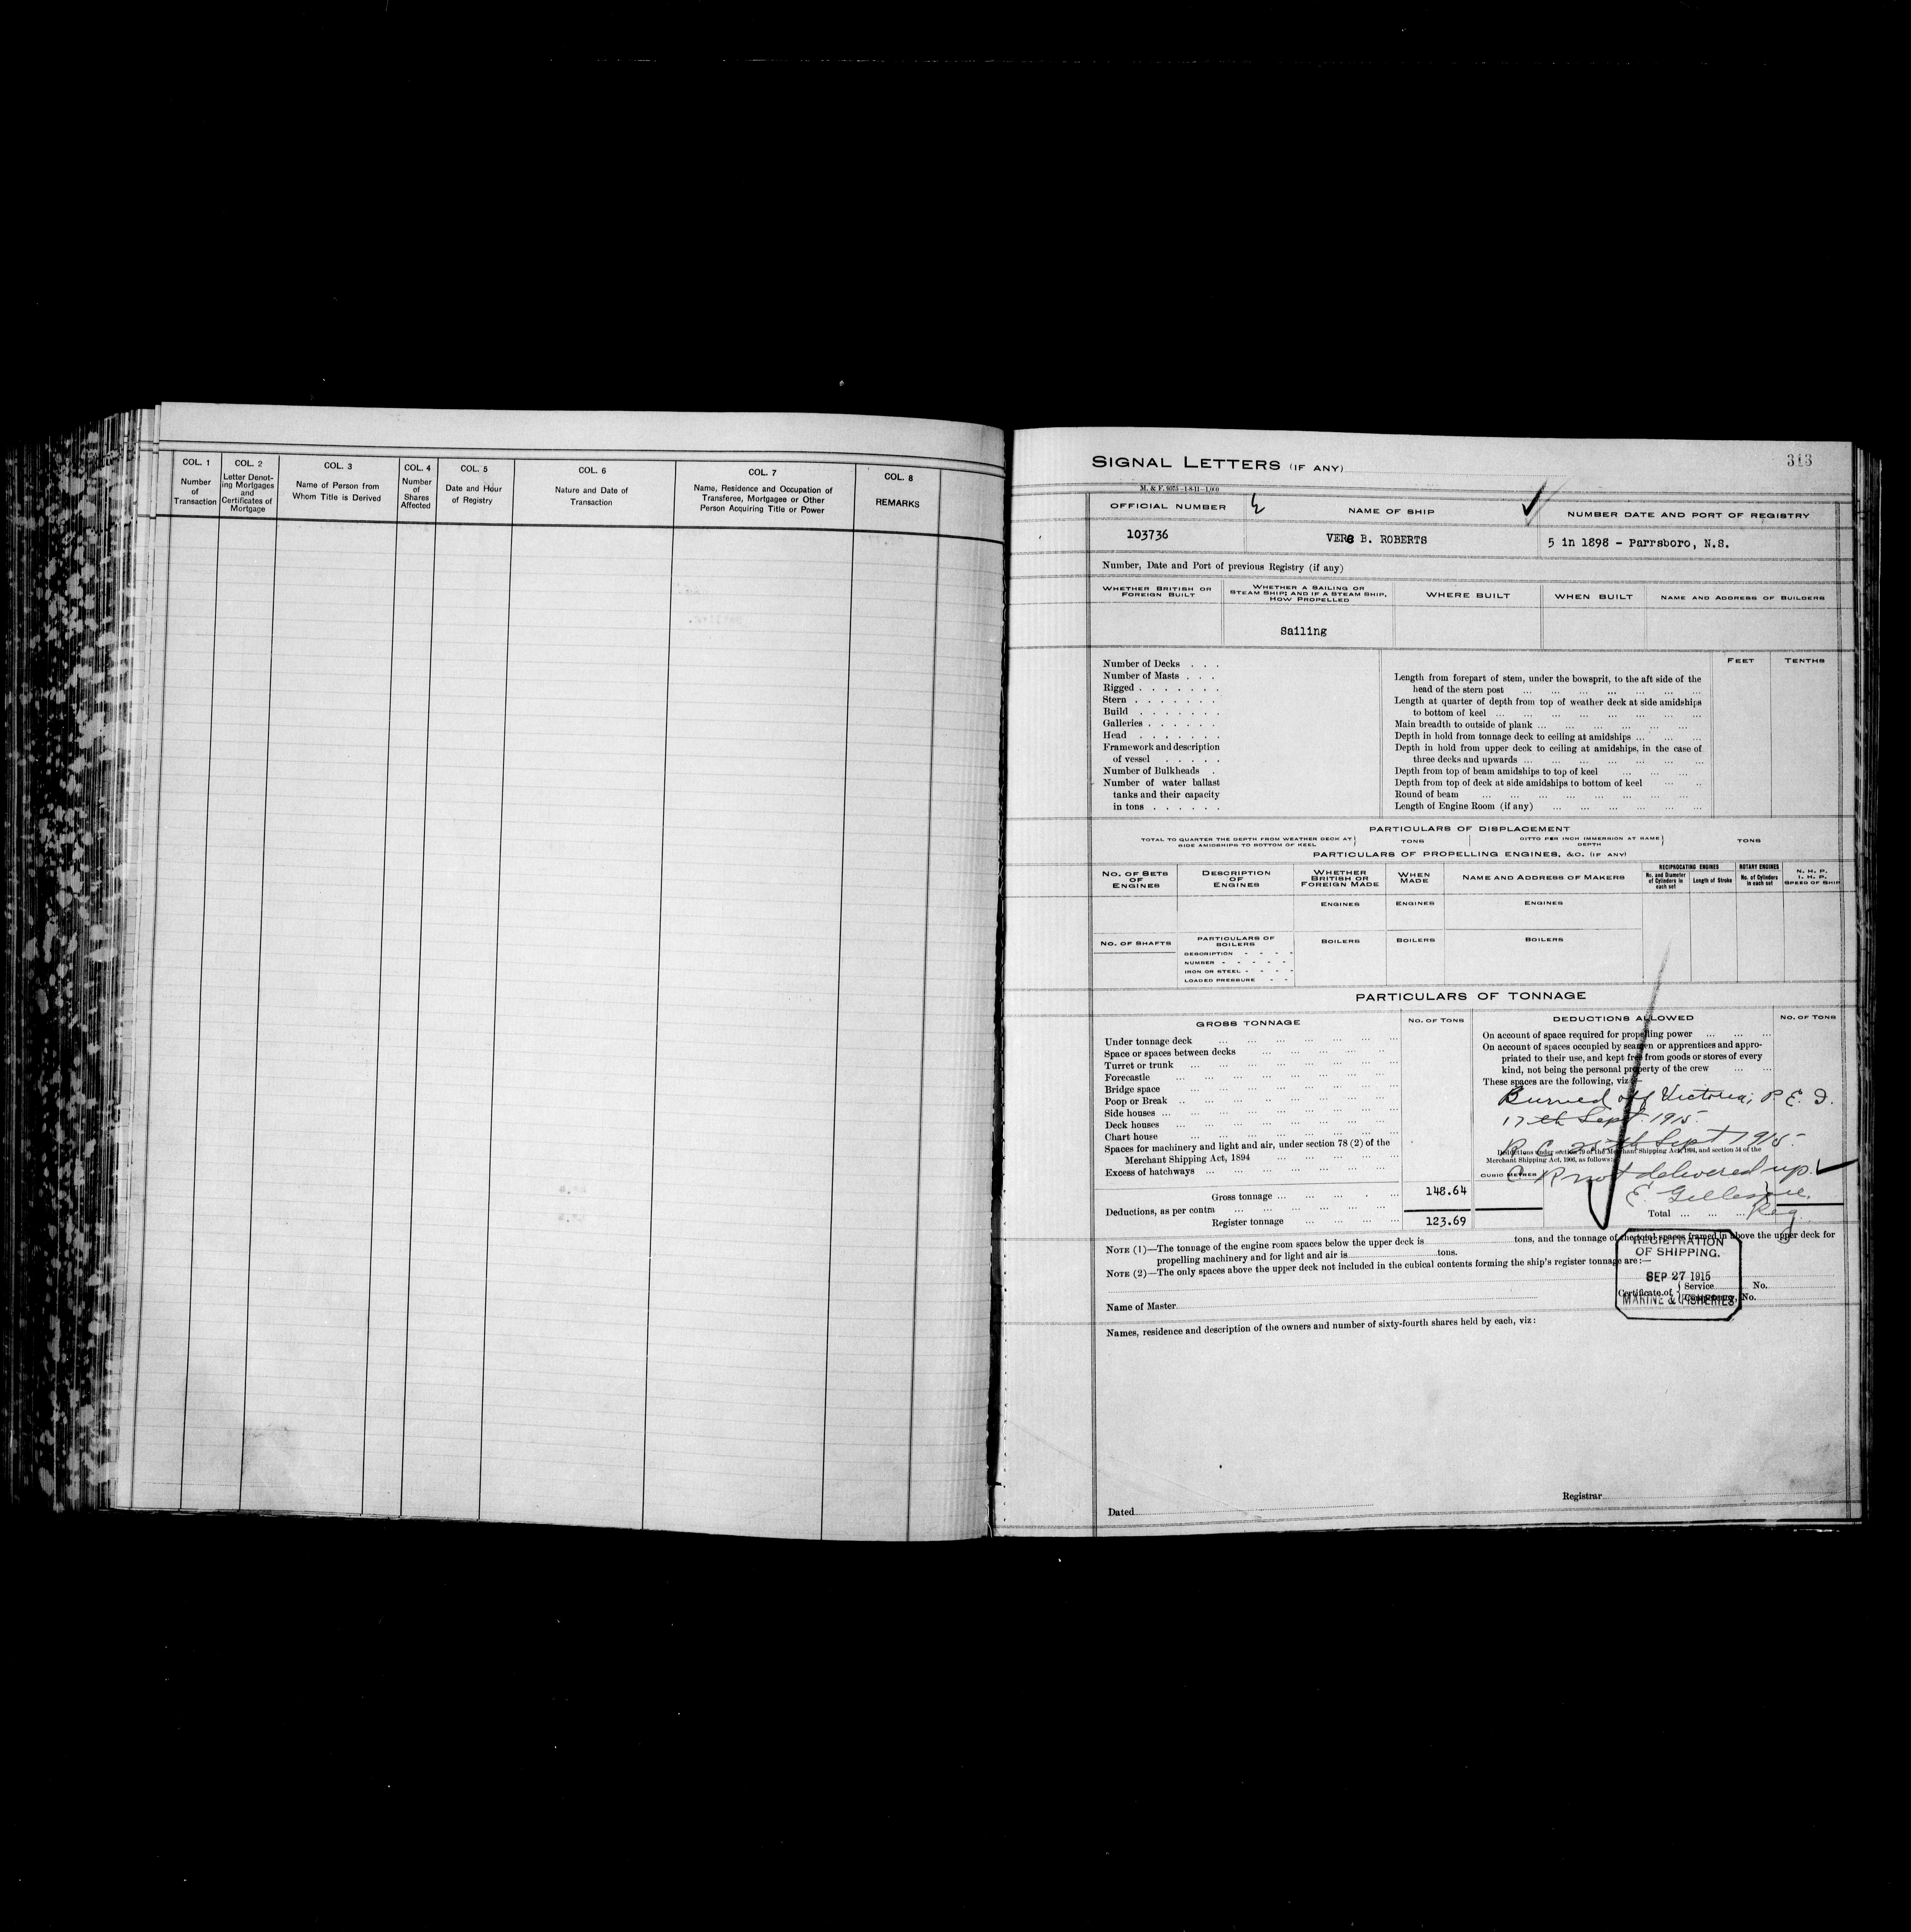 COL. 1
Number
of
Transaction
COL. 2
Letter Denot-
ing Mortgages
and
Certificates of
Mortgage
COL. 3
Name of Person from
Whom Title is Derived
COL. 4
Number
of
Shares
Affected
COL. 5
Date and Hour
of Registry
COL. 6
Nature and Date of
Transaction
COL. 7
Name, Residence and Occupation of
Transferee, Mortgagee or Other
Person Acquiring Title or Power
COL. 8
REMARKS
SIGNAL LETTERS (IF ANY)
313
M. & F. 9375—1-8-11—1,000
OFFICIAL NUMBER
NAME OF SHIP
NUMBER DATE AND PORT OF REGISTRY
103736
VERe B. ROBERTS
5 in 1898 - Parrsboro, N.S.
Number, Date and Port of previous Registry (if any)
WHETHER BRITISH OR
FOREIGN BUILT
WHETHER A SAILING OR
STEAM SHIP; AND IF A STEAM SHIP,
HOW PROPELLED
WHERE BUILT
WHEN BUILT
NAME AND ADDRESS OF BUILDERS
Sailing
FEET
TENTHS
Number of Decks . . .
Number of Masts . . .
Rigged . . . . . . .
Stern . . . . . . .
Build . . . . . . .
Galleries . . . . . .
Head . . . . . . .
Framework and description
of vessel . . . . .
Number of Bulkheads .
Number of water ballast
tanks and their capacity
in tons . . . . . .
Length from forepart of stem, under the bowsprit, to the aft side of the
head of the stern post ... ... ... ... ... ... ...
Length at quarter of depth from top of weather deck at side amidships
to bottom of keel ... ... ... ... ... ... ... ...
Main breadth to outside of plank ... ... ... ... ... ...
Depth in hold from tonnage deck to ceiling at amidships ... ... ...
Depth in hold from upper deck to ceiling at amidships, in the case of
three decks and upwards ... ... ... ... ... ... ...
Depth from top of beam amidships to top of keel ... ... ...
Depth from top of deck at side amidships to bottom of keel ... ..
Round of beam ... ... ... ... ... ... ... ...
Length of Engine Room (if any) ... ... ... ... ... ...
PARTICULARS OF DISPLACEMENT
TOTAL TO QUARTER THE DEPTH FROM WEATHER DECK AT
SIDE AMIDSHIPS TO BOTTOM OF KEEL
TONS
DITTO PER INCH IMMERSION AT SAME
DEPTH
TONS
PARTICULARS OF PROPELLING ENGINES, &C. (IF ANY)
NO. OF SETS
OF
ENGINES
DESCRIPTION
OF
ENGINES
WHETHER
BRITISH OR
FOREIGN MADE
WHEN
MADE
NAME AND ADDRESS OF MAKERS
RECIPROCATING ENGINES
No. and Diameter
of Cylinders in
each set
Length of Stroke
ROTARY ENGINES
No. of Cylinders
in each set
N. H. P.
I. H. P.
SPEED OF SHIP
ENGINES
ENGINES
ENGINES
NO. OF SHAFTS
PARTICULARS OF
BOILERS
BOILERS
BOILERS
BOILERS
DESCRIPTION - - - -
NUMBER - - - - -
IRON OR STEEL - - - -
LOADED PRESSURE - -
PARTICULARS OF TONNAGE
GROSS TONNAGE
NO. OF TONS
DEDUCTIONS ALLOWED
NO. OF TONS
Under tonnage deck ... ... ... ... ... ... ...
Space or spaces between decks ... ... ... ... ...
Turret or trunk ... ... ... ... ... ... ...
Forecastle ... ... ... ... ... ... ...
Bridge space ... ... ... ... ... ... ...
Poop or Break .. ... ... ... ... ... ...
Side houses ... ... ... ... ... ... ...
Deck houses ... ... ... ... ... ... ...
Chart house ... ... ... ... ... ... ...
Spaces for machinery and light and air, under section 78 (2) of the
Merchant Shipping Act, 1894 ... ... ... ...
Excess of hatchways ... ... ... ... ... ...
Gross tonnage ... ... ... . ...
148.64
Deductions, as per contra ... ... ... ... ... ...
Register tonnage ... ... ... ...
123.69
On account of space required for propelling power ... ... ...
On account of spaces occupied by seamen or apprentices and appro-
priated to their use, and kept free from goods or stores of every
kind, not being the personal property of the crew ... ...
These spaces are the following, viz:—
Burned off Victoria, P. E. I.
17th Sept. 1915.
R. C. 25th Sept 1915.
Deductions under section 79 of the Merchant Shipping Act, 1894, and section 54 of the
Merchant Shipping Act, 1906, as follows:
CUBIC METRES
C. R not delivered up.
E. Gillespie,
Reg.
Total ... ... ...
NOTE (1)—The tonnage of the engine room spaces below the upper deck is tons, and the tonnage of the total spaces framed in above the upper deck for
propelling machinery and for light and air is tons.
NOTE (2)—The only spaces above the upper deck not included in the cubical contents forming the ship's register tonnage are:—
REGISTRATION
OF SHIPPING.
SEP 27 1915
MARINE & FISHERIES
Name of Master
Certificate of
Service No.
Competency, No.
Names, residence and description of the owners and number of sixty-fourth shares held by each, viz:
Dated
Registrar